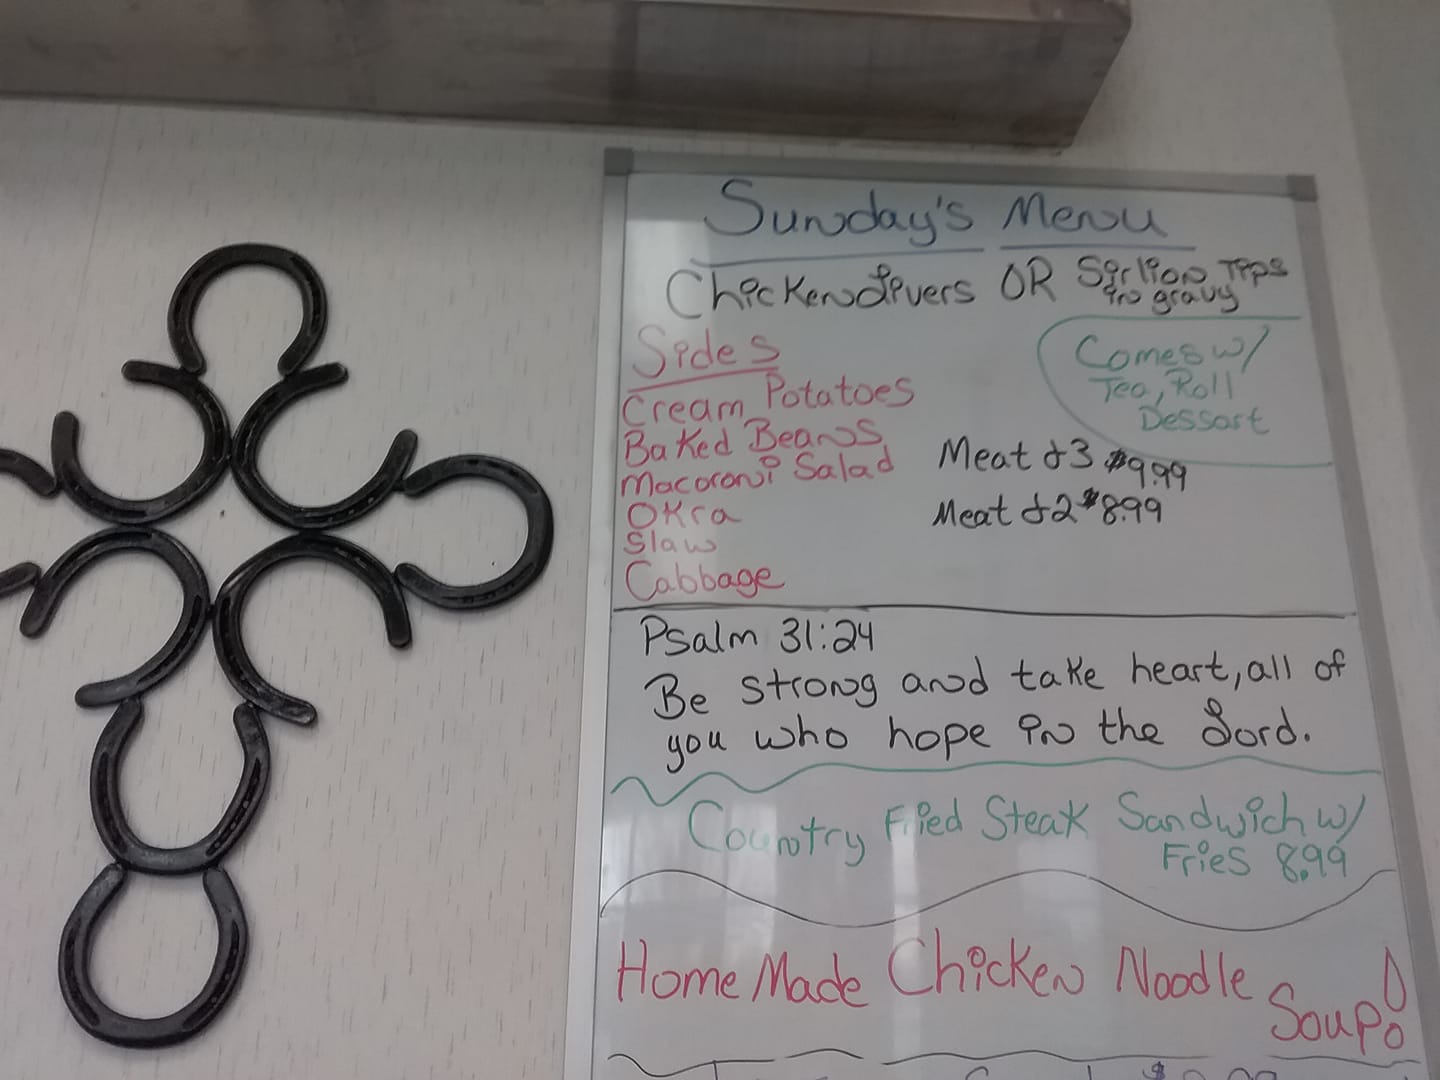 Sunday's Menu
Chicken livers OR Sirlion Tips
in gravy
Sides
Cream Potatoes
Baked Beans
Macoroni Salad
Okra
Slaw
Cabbage
Comes w/
Tea, Roll
Dessart
Meat & 3 $9.99
Meat & 2 $8.99
Psalm 31:24
Be strong and take heart, all of
you who hope in the Lord.
Country Fried Steak Sandwich w/
Fries 8.99
Home Made Chicken Noodle
Soup!